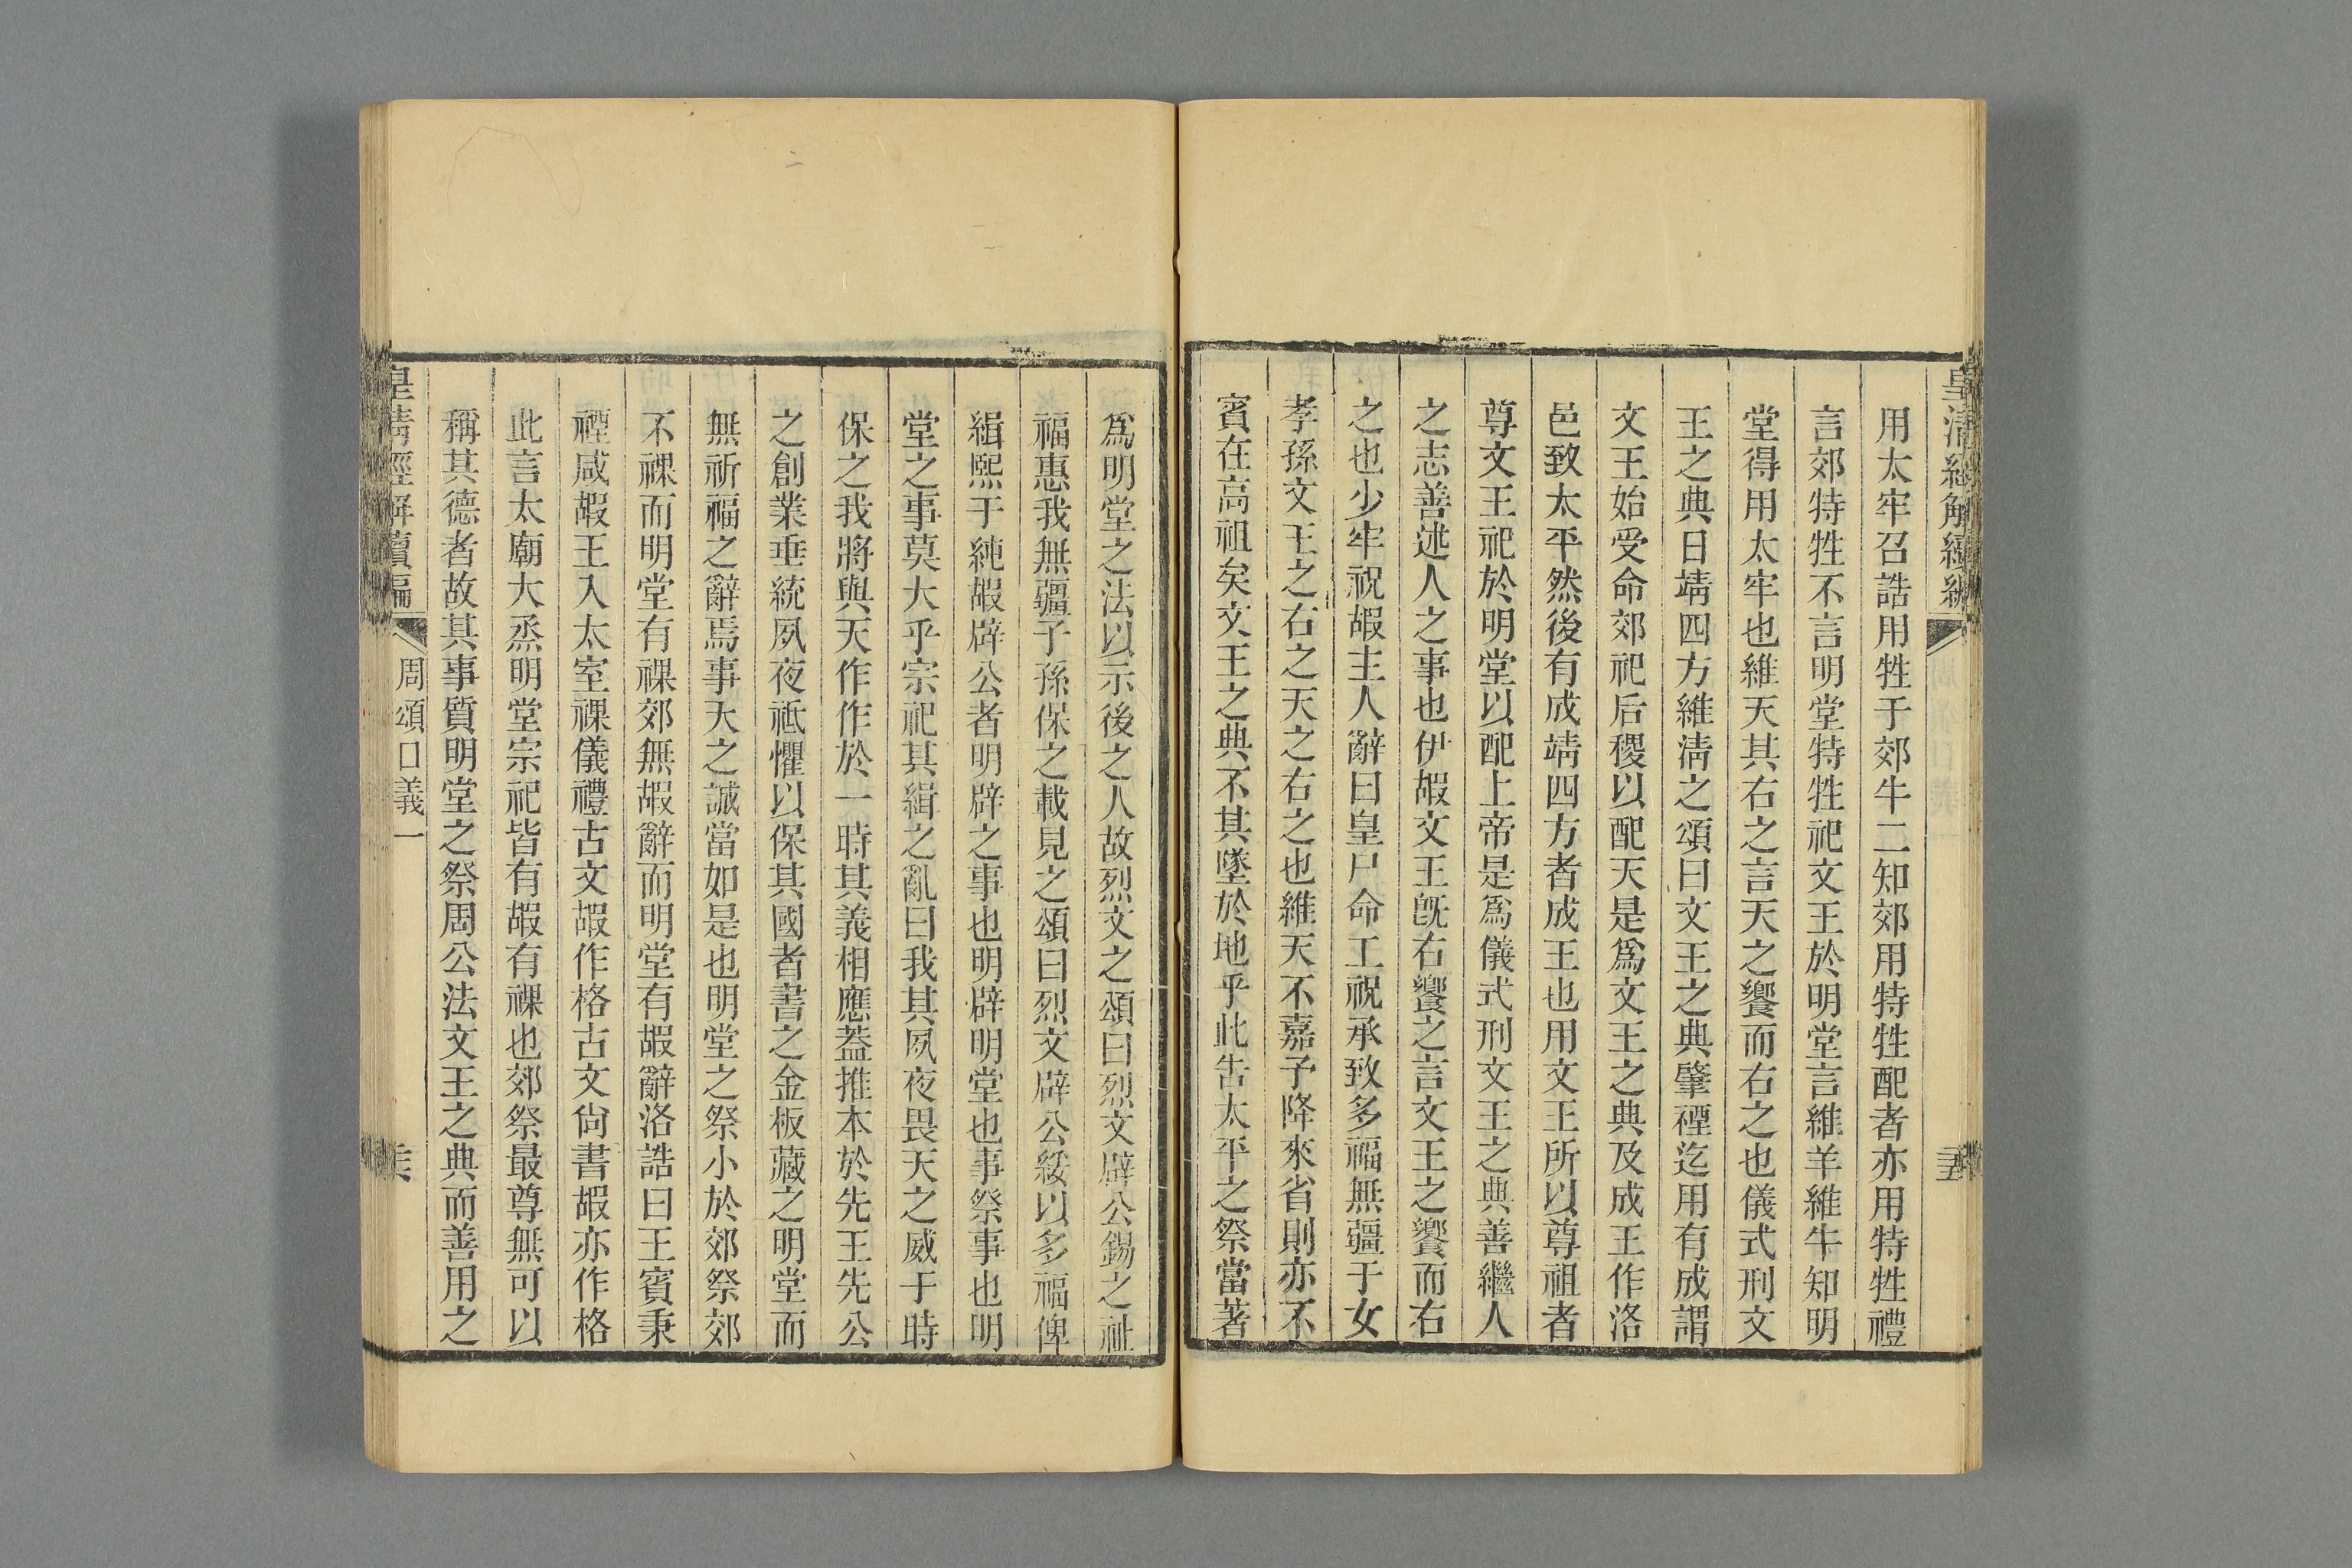 皇清經解續編
用太牢召誥用牲于郊牛二知郊用特牲配者亦用特牲禮
言郊特牲不言明堂特牲祀文王於明堂言維羊維牛知明
堂得用太牢也維天其右之言天之饗而右之也儀式刑文
王之典日靖四方維清之頌曰文王之典肇禋迄用有成謂
文王始受命郊祀后稷以配天是爲文王之典及成王作洛
邑致太平然後有成靖四方者成王也用文王所以尊祖者
尊文王祀於明堂以配上帝是爲儀式刑文王之典善繼人
之志善述人之事也伊嘏文王旣右饗之言文王之饗而右
之也少牢祝嘏主人辭曰皇尸命工祝承致多福無疆于女
孝孫文王之右之天之右之也維天不嘉予降來省則亦不
賓在高祖矣文王之典不其墜於地乎此告太平之祭當著
爲明堂之法以示後之人故烈文之頌曰烈文辟公錫之祉
福惠我無疆子孫保之載見之頌曰烈文辟公綏以多福俾
緝熙于純嘏辟公者明辟之事也明辟明堂也事祭事也明
堂之事莫大乎宗祀其緝之亂曰我其夙夜畏天之威于時
保之我將與天作作於一時其義相應葢推本於先王先公
之創業垂統夙夜祗懼以保其國者書之金板藏之明堂而
無祈福之辭焉事天之誠當如是也明堂之祭小於郊祭郊
不祼而明堂有祼郊無嘏辭而明堂有嘏辭洛誥曰王賓秉
禋咸嘏王入太室祼儀禮古文嘏作格古文尙書嘏亦作格
此言太廟大烝明堂宗祀皆有嘏有祼也郊祭最尊無可以
稱其德者故其事質明堂之祭周公法文王之典而善用之
皇清經解續編
周頌口義一